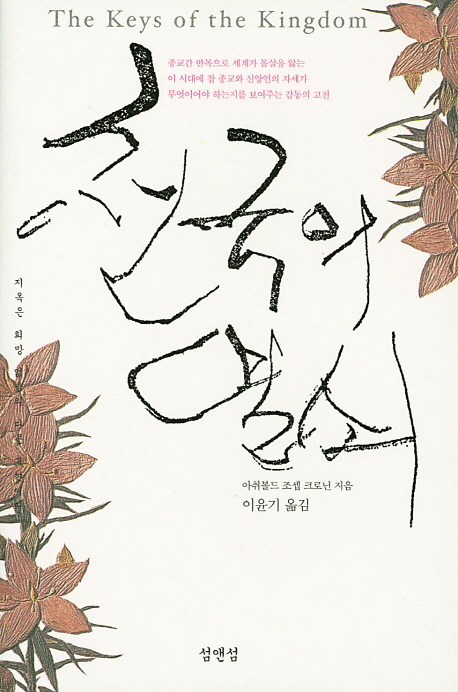 The Keys of the Kingdom
종교간 반목으로 세계가 몸살을 앓는
이 시대에 참 종교와 신앙인의 자세가
무엇이어야 하는지를 보여주는 감동의 고전
천국의
열쇠
지옥은 희망
아취볼드 조셉 크로닌 지음
이윤기 옮김
섬앤섬